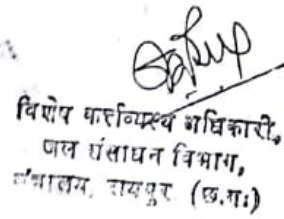 विशेष कर्त्तव्यस्थ अधिकारी,
जल संसाधन विभाग,
मंत्रालय, रायपुर (छ.ग.)